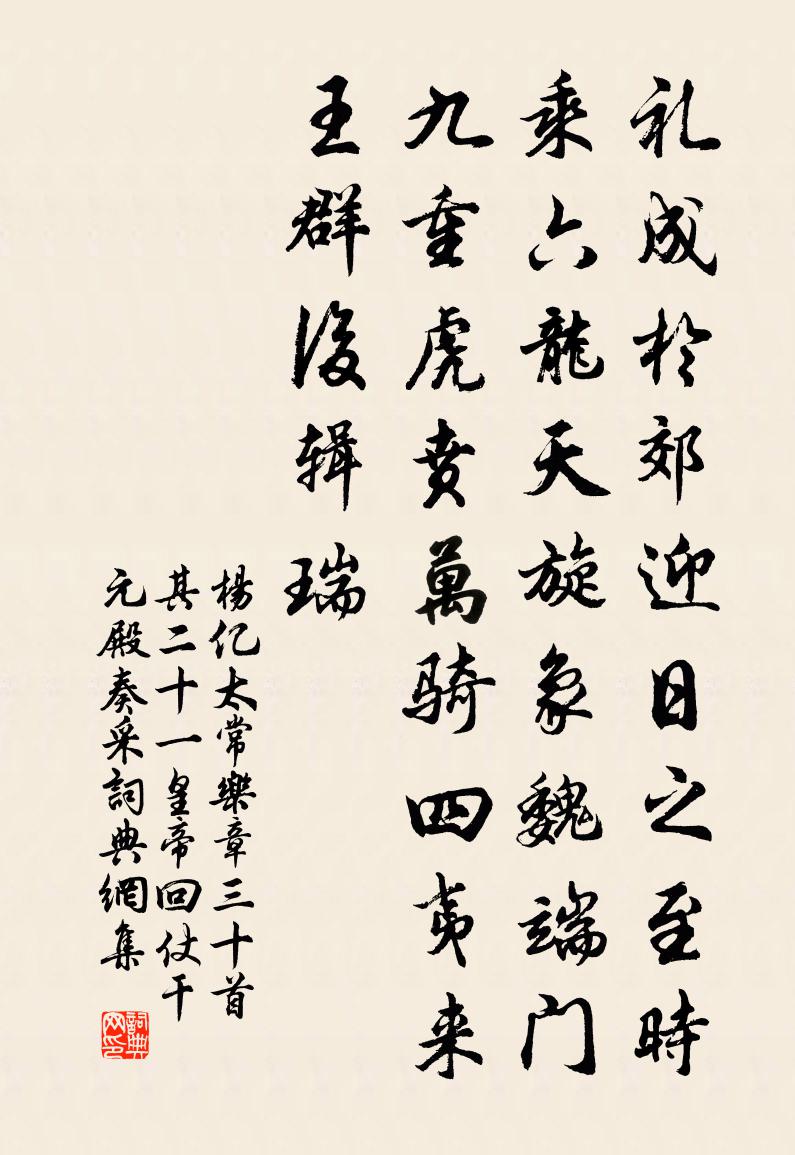 礼成於郊迎日之至時
乘六龍天旋象魏端門
九重虎賁萬騎四夷来
王群後辑瑞
楊亿太常樂章三十首
其二十一皇帝回仗干
元殿奏采詞典網集
詞典网印